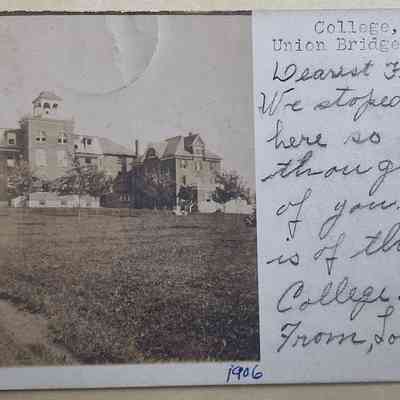 College,
Union Bridge
Dearest F
We stoped
here so
thoug
of you.
is of th
College.
From, Lo
1906